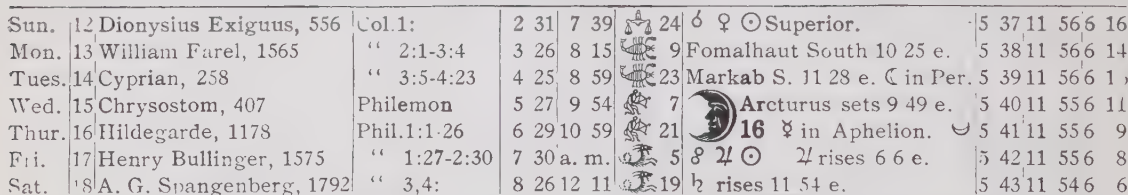 Sun. 12 Dionysius Exiguus, 556 Col.1: 2 31 7 39 24 ☌ ♀ ☉ Superior. 5 37 11 56 6 16
Mon. 13 William Farel, 1565 “ 2:1-3:4 3 26 8 15 9 Fomalhaut South 10 25 e. 5 38 11 56 6 14
Tues. 14 Cyprian, 258 “ 3:5-4:23 4 25 8 59 23 Markab S. 11 28 e. ☾ in Per. 5 39 11 56 6 1
Wed. 15 Chrysostom, 407 Philemon 5 27 9 54 7 Arcturus sets 9 49 e. 5 40 11 55 6 11
Thur. 16 Hildegarde, 1178 Phil.1:1-26 6 29 10 59 21 16 ☿ in Aphelion. 5 41 11 55 6 9
Fri. 17 Henry Bullinger, 1575 “ 1:27-2:30 7 30 a. m. 5 ☍ ♃ ☉ ♃ rises 6 6 e. 5 42 11 55 6 8
Sat. 18 A. G. Spangenberg, 1792 “ 3,4: 8 26 12 11 19 ♄ rises 11 54 e. 5 43 11 54 6 6